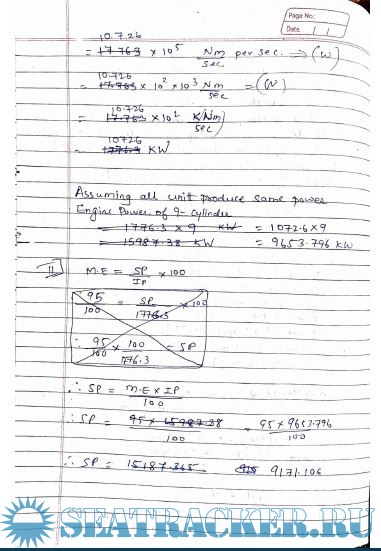 Page No:
Date: / /
10.726
= 17.763 × 10⁵ Nm/sec per sec. ⇒ (W)
10.726
= 17.763 × 10² × 10³ Nm/sec = (W)
10.726
= 17.763 × 10² K(Nm/sec)
1072.6
= 1776.3 KW
Assuming all unit produce same power
Engine Power of 9-cylinder
= 1776.3 × 9 KW = 1072.6 × 9
= 15987.38 KW = 9653.796 KW
II M.E = SP/IP × 100
95/100 = SP/1776.3 × 100
∴ 95/100 × 100/1776.3 = SP
∴ SP = M.E × IP / 100
∴ SP = 95 × 15987.38 / 100 = 95 × 9653.796 / 100
∴ SP = 15187.365 9171.106
SEATRACKER.RU